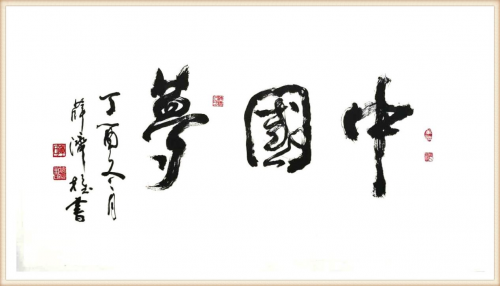 中國夢
丁酉冬月
薛 書